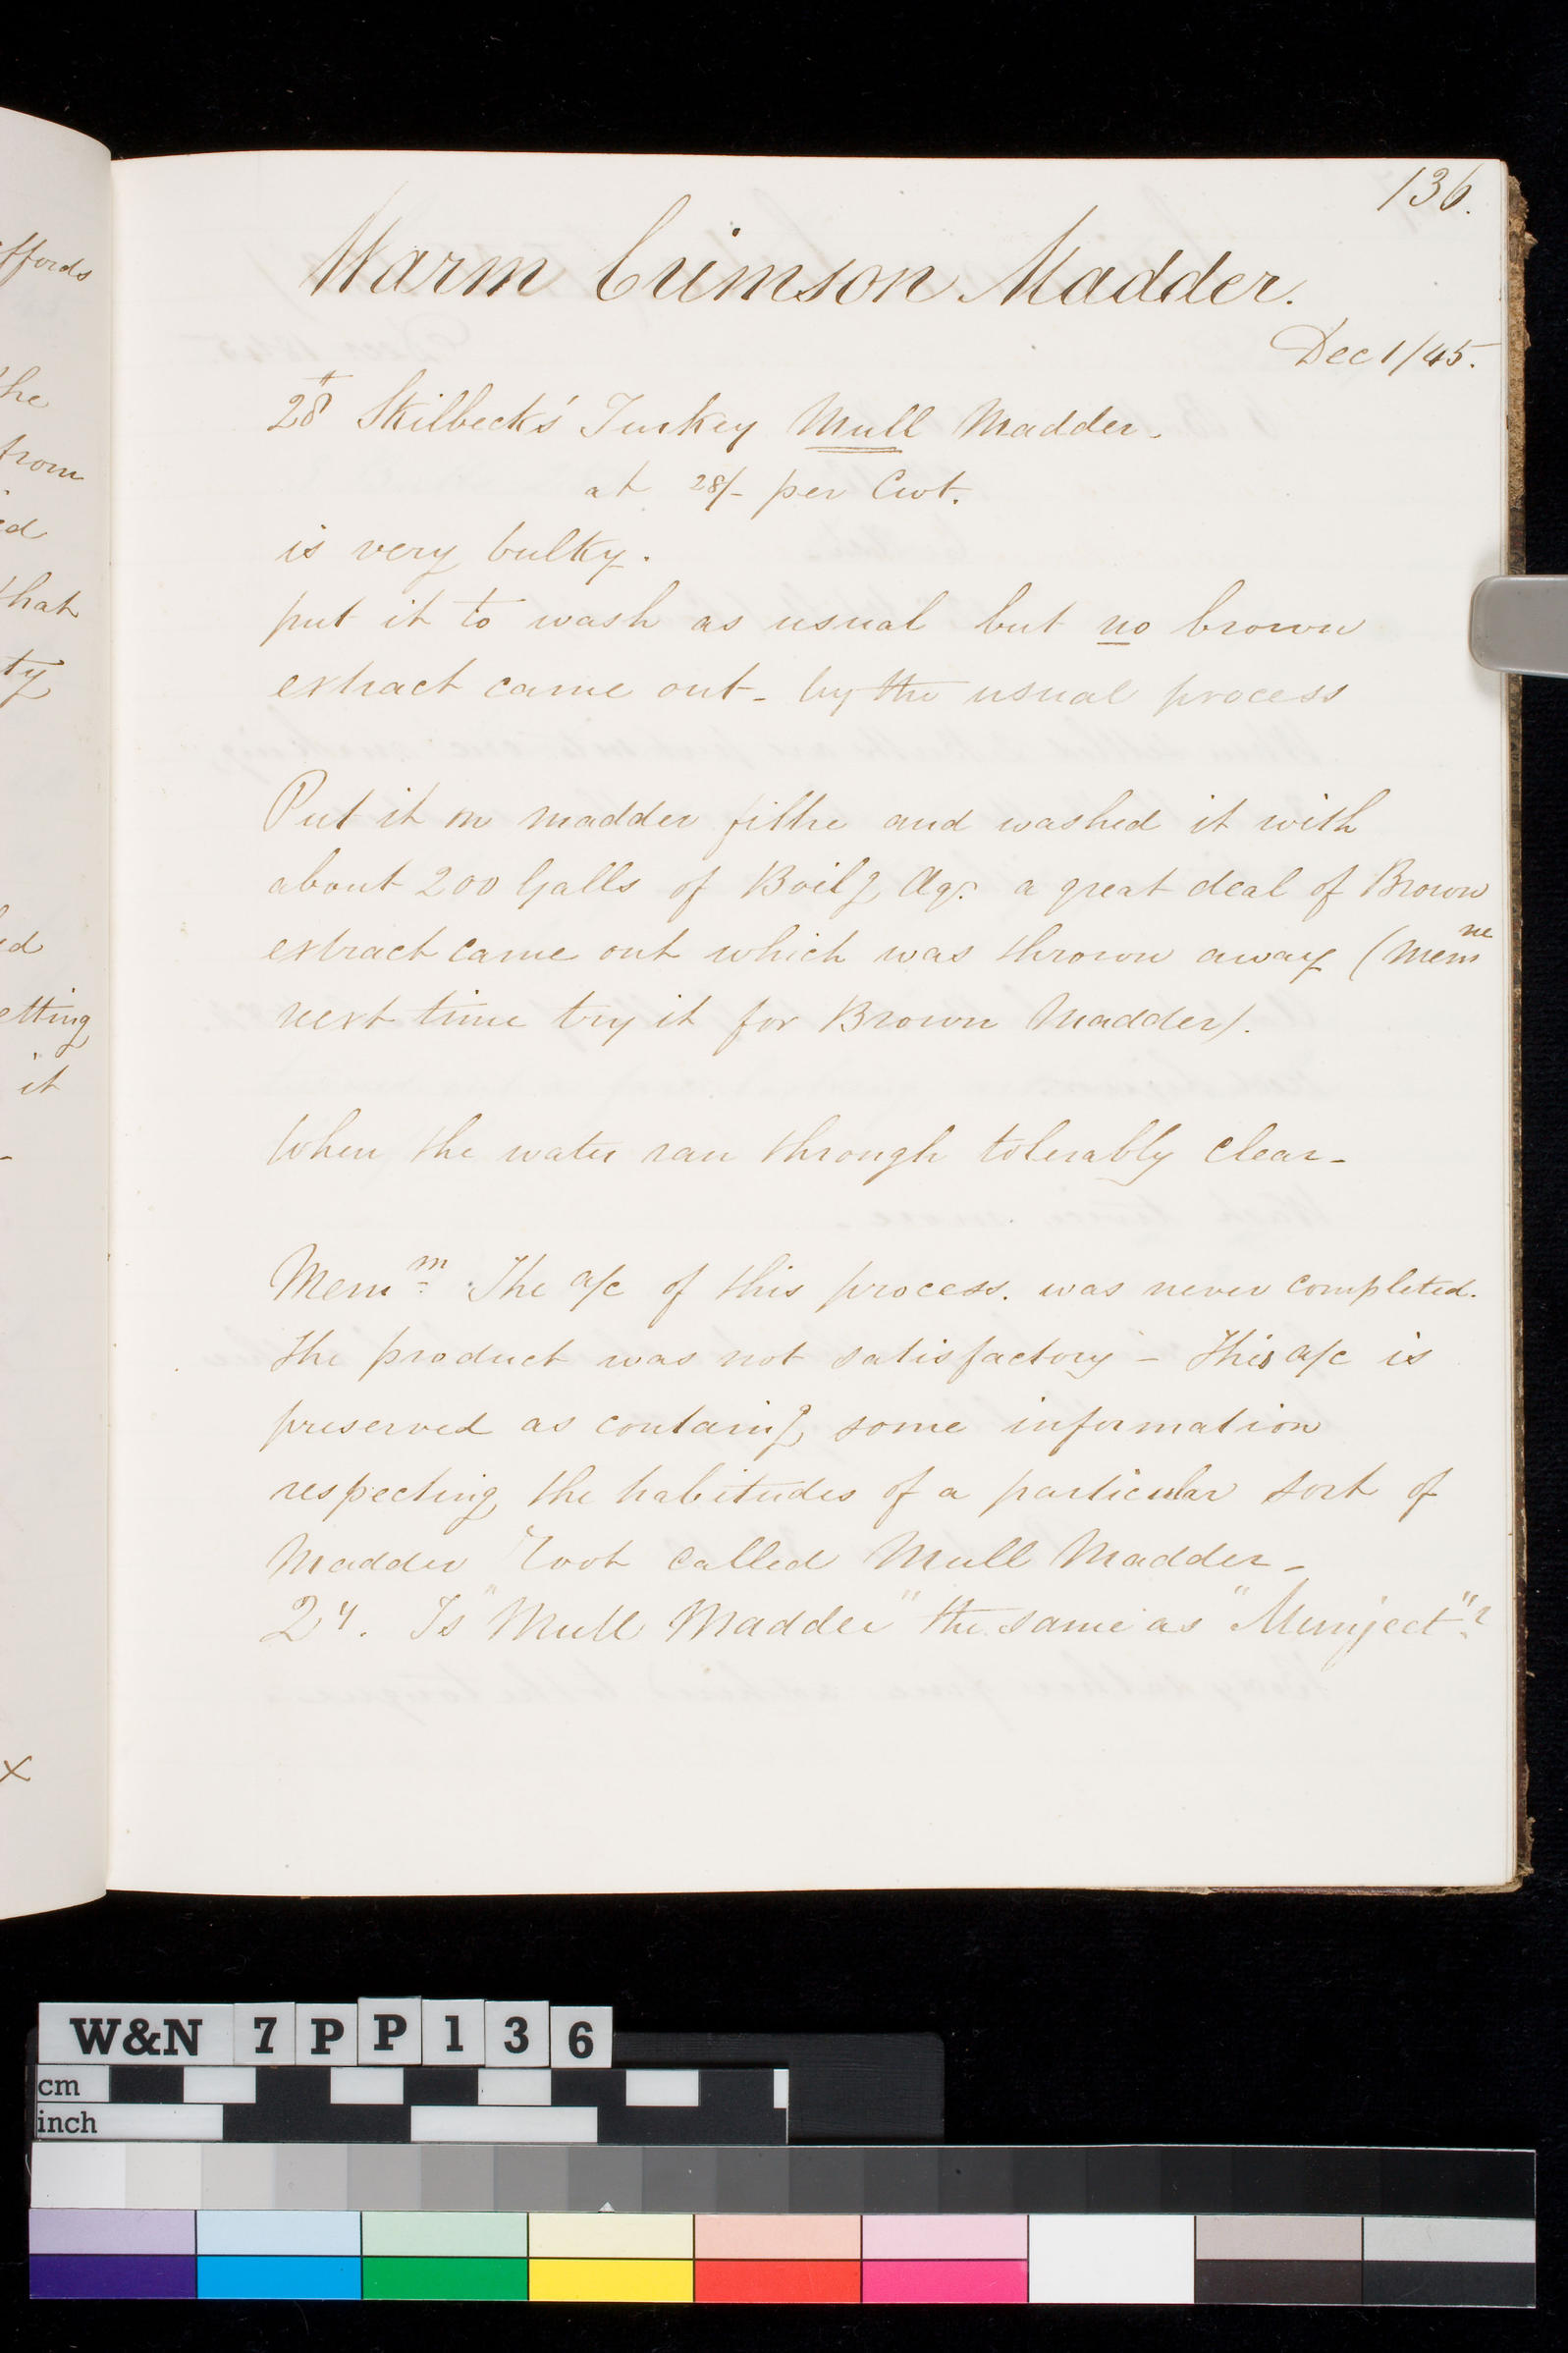 ffords
the
from
ed
that
ty
ed
etting
it
x
136.
Warm Crimson Madder.
Dec 1/45.
28# Skilbeck's Turkey Mull Madder.
at 28/- per Cwt.
is very bulky.
put it to wash as usual but no brown
extract came out - by the usual process
Put it in madder filtre and washed it with
about 200 Galls of Boilg Aq: a great deal of Brown
extract came out which was thrown away (Mem
next time try it for Brown Madder).
When the water ran through tolerably clear -
Memm The a/c of this process. was never completed.
The product was not satisfactory - This a/c is
preserved as containg some information
respecting the habitudes of a particular sort of
Madder Root called Mull Madder -
Qy. Is "Mull Madder" the same as "Munjeet"?
W&N 7PP136
cm
inch